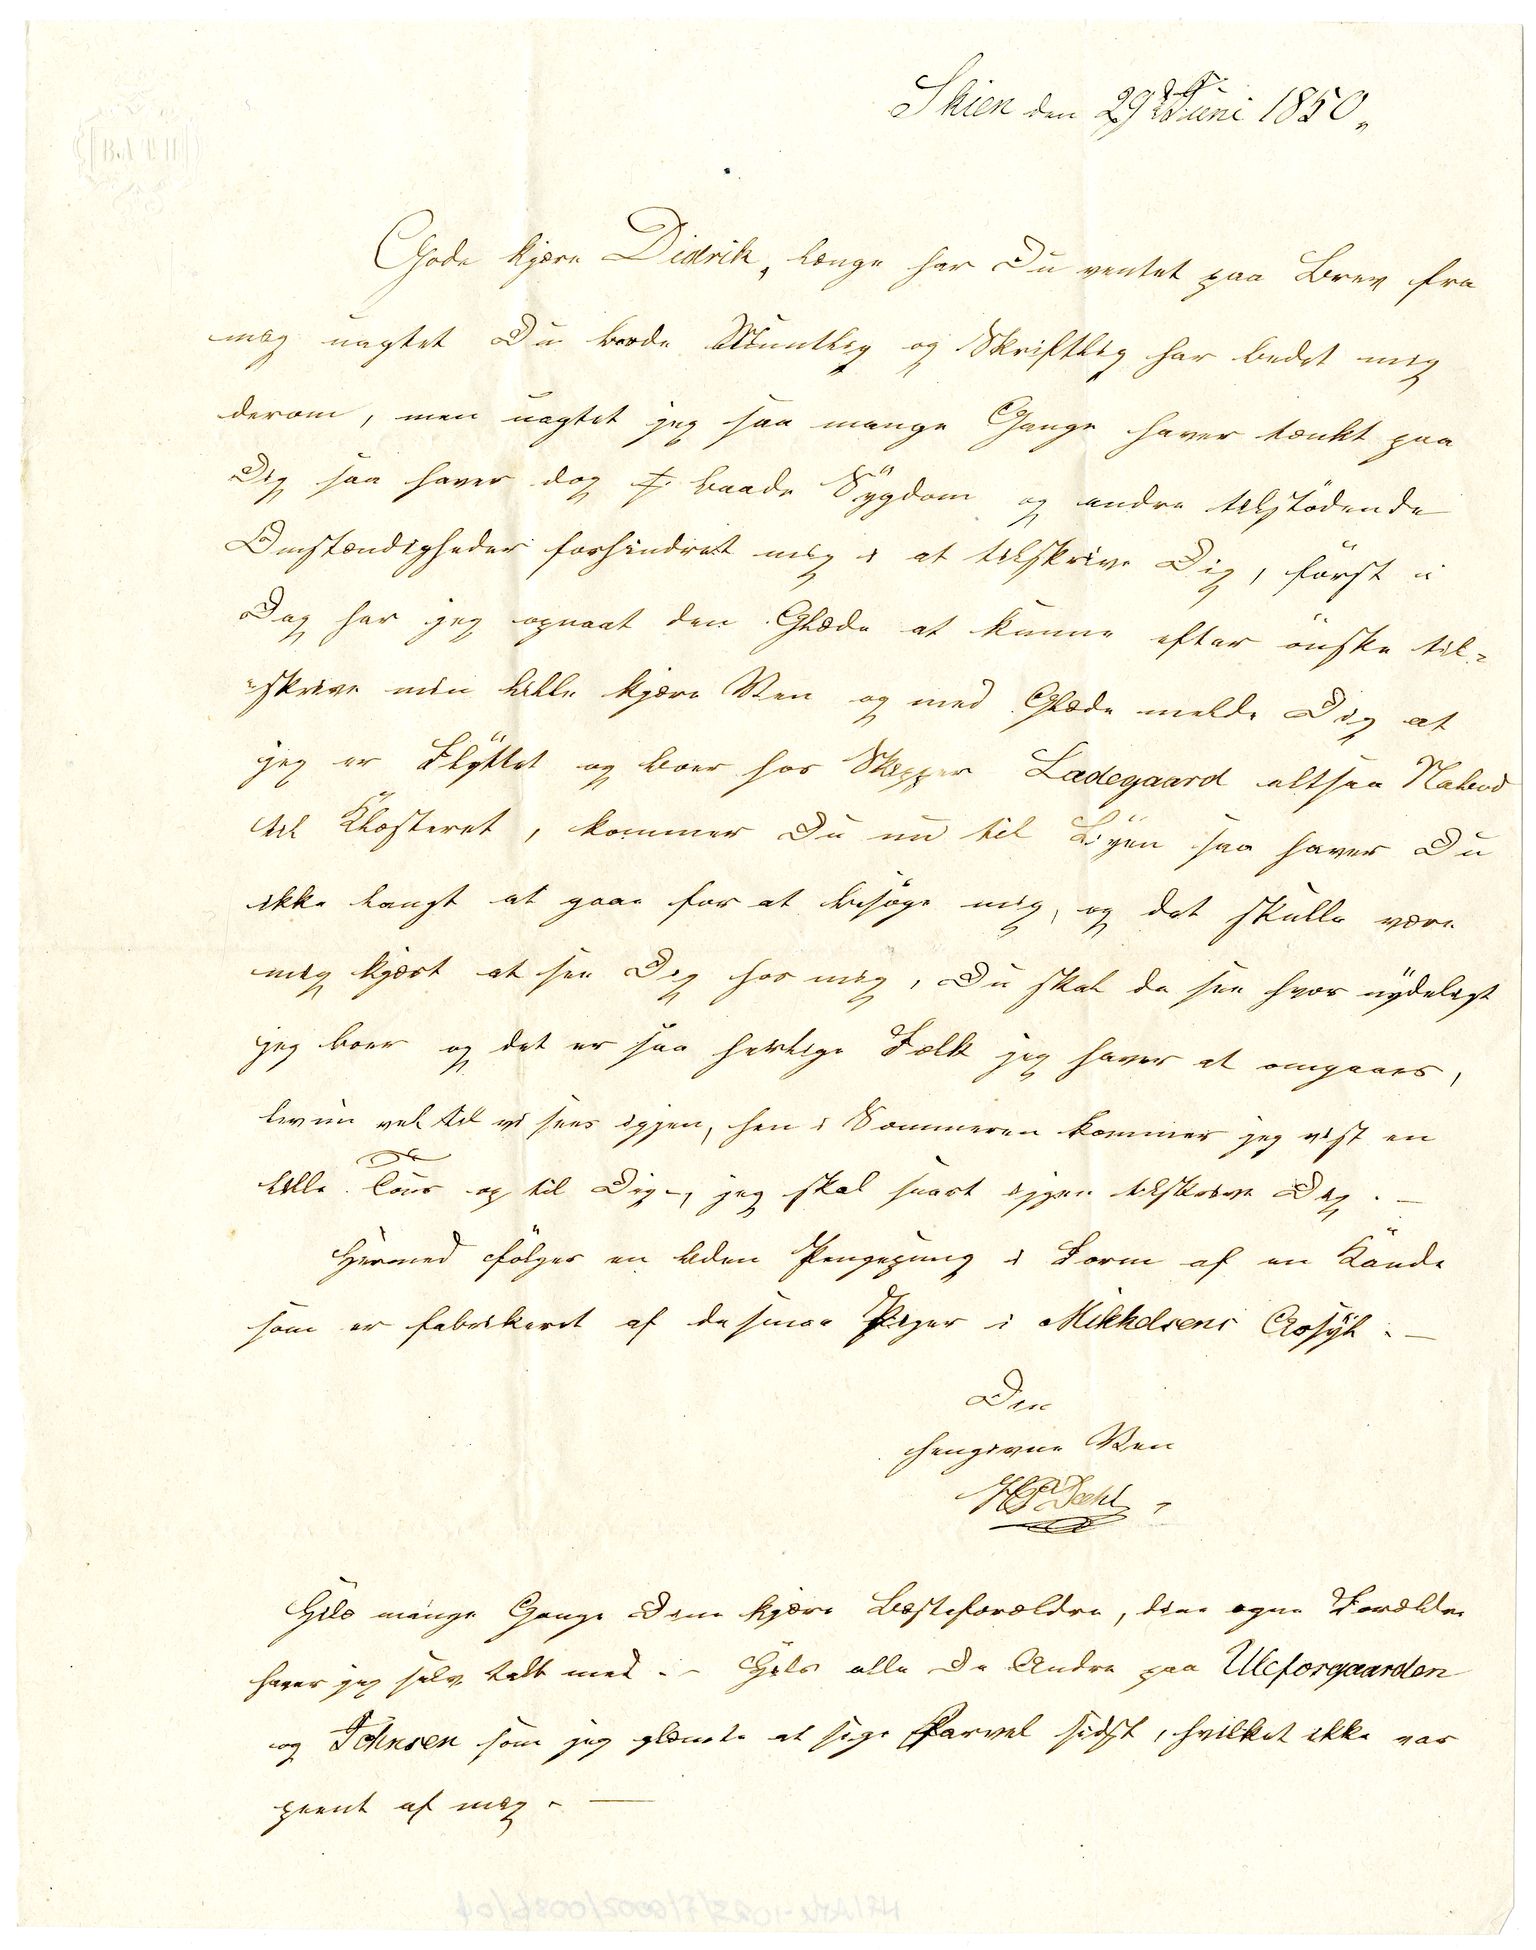 Skien den 29de Juni 1850.
Gode kjære Didrik, længe har Du ventet paa Brev fra
mig uagtet Du baade Mundtlig og Skriftlig har bedet mig
derom, men uagtet jeg saa mange Gange haver tænkt paa
Dig saa haver dog baade Sÿgdom og andre tilstødende
Omstændigheder forhindret mig i at tilskrive Dig, först i
Dag har jeg opnaaet den Glæde at kunne efter önske til-
skrive min lille kjære Ven og med Glæde melde Dig at
jeg er Flÿttet og boer hos Skipper Ladegaard altsaa Naboe
til Klosteret, kommer Du nu til Bÿen saa haver Du
ikke langt at gaae for at besöge mig, og det skulle være
mig kjært at see Dig hos mig, Du skal da see hvor nÿdeligt
jeg boer og det er saa herlige Folk jeg haver at omgaaes,
lev nu vel til vi sees igjen, hen i Sommeren kommer jeg vist en
lille Tour op til Dig, jeg skal snart igjen tilskrive Dig. —
Hermed fölger en liden Pengepung i Form af en Kande
som er fabrikeret af de smaa Piger i Mikkelsens Asÿl. —
Den
hengivne Ven
Dahl
Hils mange Gange Dine kjære Bæsteforældre, dine egne Forældre
haver jeg selv talt med. - Hils alle De Andre paa Ulefosgaarden
og Johnsen som jeg glemte at sige Farvel sidst, hvilket ikke var
pænt af mig. —
BATH